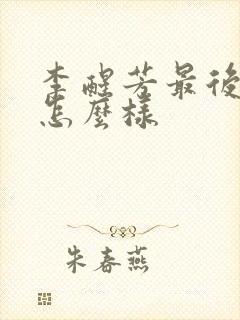 李醒芳最後
怎麼樣
朱春燕